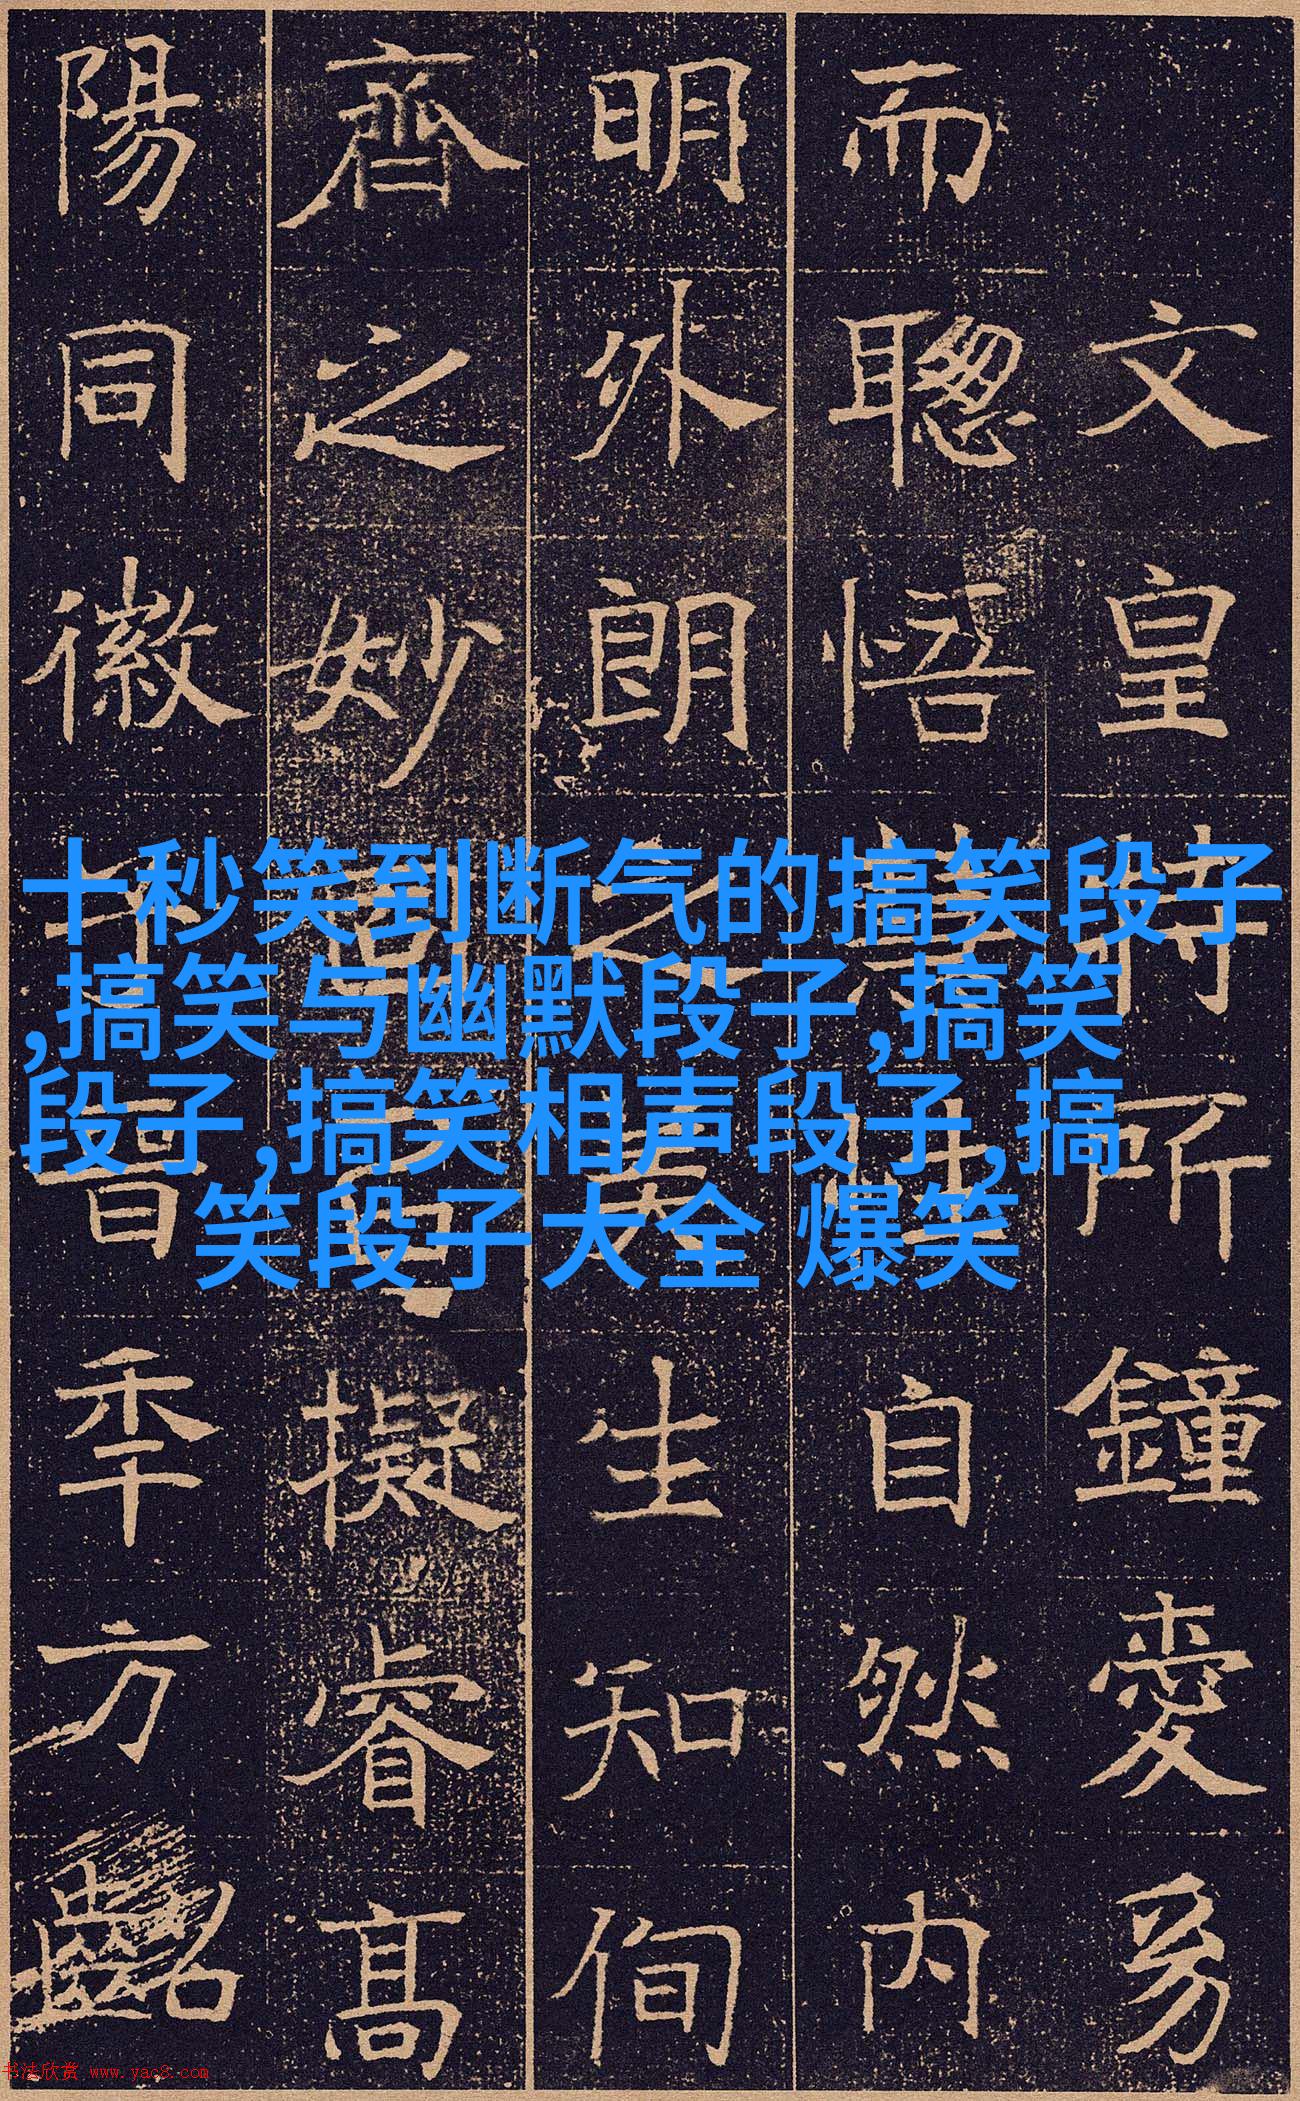 文皇所鍾愛
而聰悟自然内
明外朗之生知侚
齊之妙擬睿高
陽同徽晉季方齠
十秒笑到断气的搞笑段子
,搞笑与幽默段子,搞笑
段子,搞笑相声段子,搞
笑段子大全 爆笑
书法欣赏 www.yac8.com